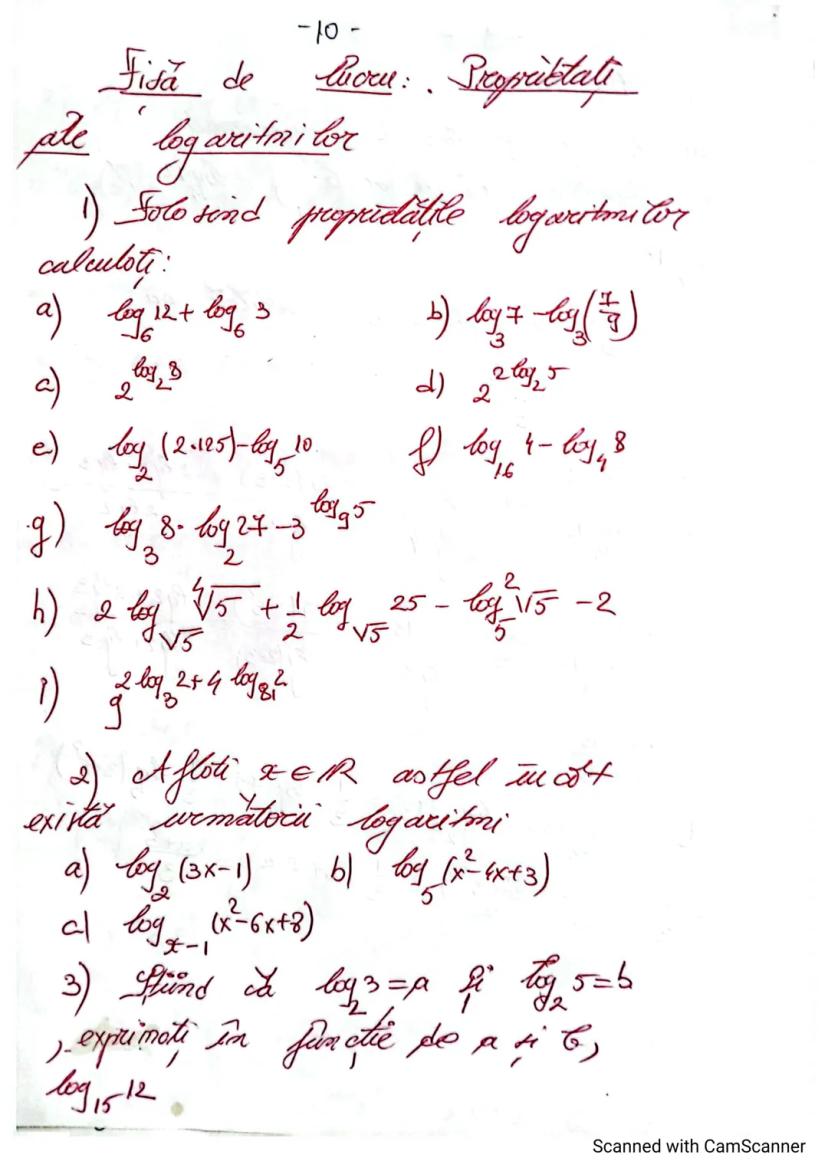 -10-
Fișă de lucru: Proprietăți
ale logaritmilor
1) Folosind proprietățile logaritmilor
calculați:
a) log₆ 12 + log₆ 3 b) log₃ 7 - log₃ (7/9)
c) 2^(log₂ 8) d) 2^(2 log₂ 5)
e) log₂ (2·125) - log₅ 10 f) log₁₆ 4 - log₄ 8
g) log₃ 8 · log₂ 27 - 3^(log₉ 5)
h) 2 log_√5 ∜5 + 1/2 log_√5 25 - log₅² √5 - 2
i) 9^(2 log₃ 2 + 4 log₈₁ 2)
2) Aflați x ∈ R astfel încât
există următorii logaritmi
a) log₂ (3x-1) b) log₅ (x²-4x+3)
c) log_(x-1) (x²-6x+8)
3) Știind că log₂ 3 = a și log₂ 5 = b
, exprimați în funcție de a și b,
log₁₅ 12
Scanned with CamScanner